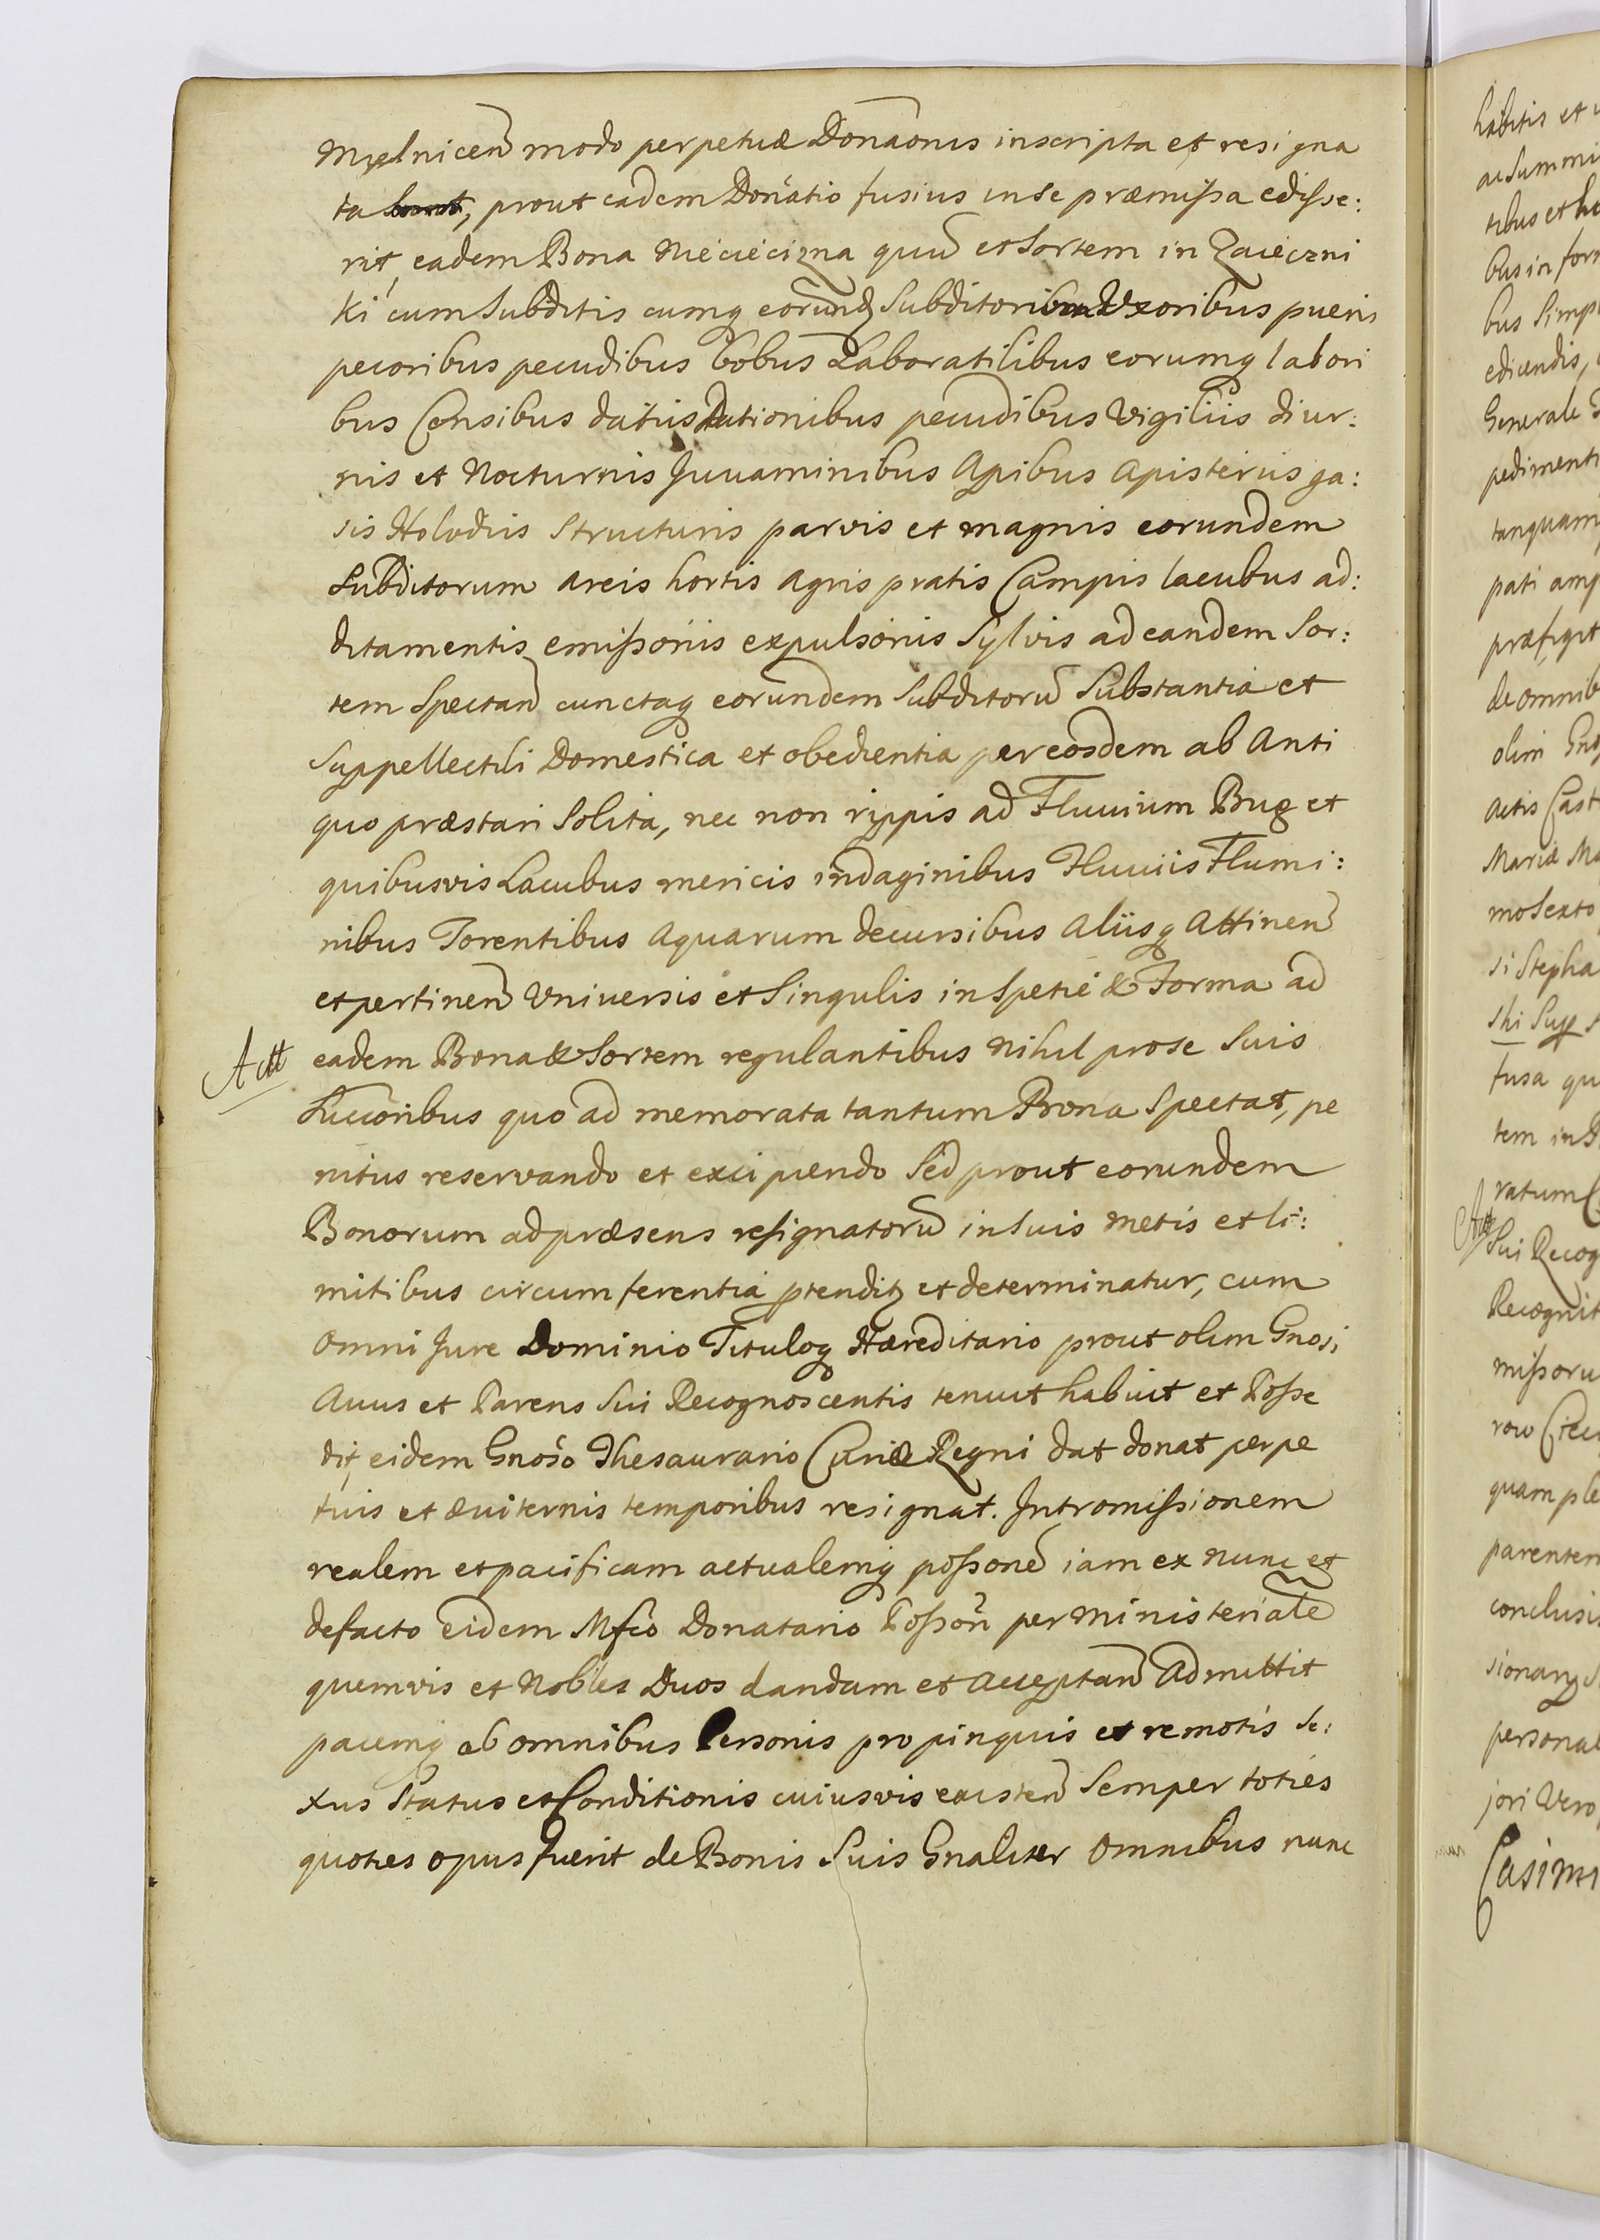 Mielnicen modo perpetuæ Donaonis inscripta et resigna
ta, prout eadem Donatio fusius in se præmissa edisse:
rit, eadem Bona Nieciecizna quū et Sortem in Zaieczni
ki cum Subditis cumq eorund Subditorum Uxoribus pueris
pecoribus pecudibus bobus Laboratilibus eorumq labori
bus Censibus datiis Dationibus pecudibus Vigiliis diur:
nis et Nocturnis Juvaminibus Apibus Apisteriis ga:
sis Holodiis Structuris parvis et magnis eorundem
Subditorum areis hortis agris pratis Campis lacubus ad:
ditamentis emissoriis expulsoriis Sylvis ad eandem Sor:
tem Spectan cunctaq eorundem Subditorū Substantia et
Suppellectili Domestica et obedientia per eosdem ab Anti
quo præstari Solita, nec non rippis ad Fluuium Bug et
quibusvis Lacubus mericis indaginibus Fluuiis Flumi:
nibus Torentibus Aquarum decursibus Aliisq Attinen
et pertinen Vniuersis et Singulis in Spetie & Forma ad
eadem Bona & Sortem regulantibus Nihil pro se Suis
Succoribus quo ad memorata tantum Bona Spectat, pe
nitus reservando et excipiendo Sed prout eorundem
Bonorum ad præsens resignatorū in Suis Metis et li:
mitibus circumferentia ptenditq et determinatur, cum
omni Jure Dominio Tituloq Hæreditario prout olim Gnosi
Auus et Parens Sui Recognoscentis tenuit habuit et Posse
dit, eidem Gnoso Thesaurario Curiæ Regni dat donat perpe
tuis et æuiternis temporibus resignat. Intromissionem
realem et pacificam actualemq possonē iam ex nunc et
de facto eidem Mfco Donatario Posson per Ministeriale
quemvis et Nobles Duos dandam et acceptan Admittit
pacemq ab omnibus Personis propinquis et remotis Se:
xus Status et Conditionis cuiusvis existen Semper toties
quoties opus fuerit de Bonis Suis Gnaliter Omnibus nunc